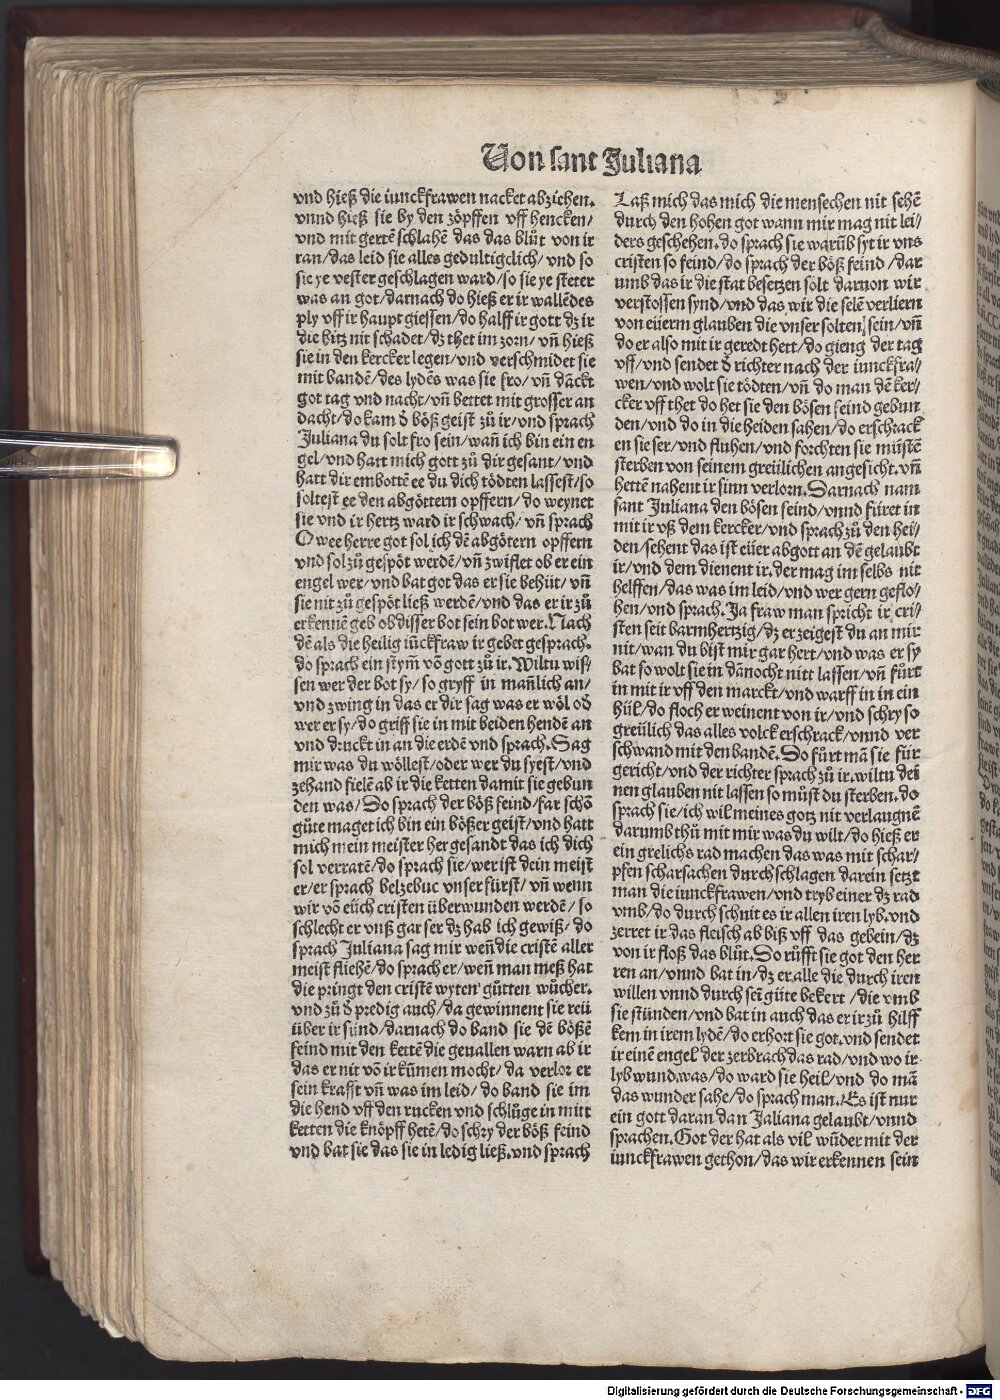 Von sant Juliana
vnd hieß die iunckfrawen nacket abziehen.
vnnd hieß sie by den zöpffen vff hencken/
vnd mit gertē schlahē das das blůt von ir
ran/das leid sie alles gedultigclich/ vnd so
sie ye vester geschlagen ward/so sie ye steter
was an got/darnach do hieß er ir wallēdes
ply vff ir haupt giessen/do halff ir gott dz ir
die hitz nit schadet/dz thet im zorn/ vñ hieß
sie in den kercker legen/vnd verschmidet sie
mit bandē/des lydēs was sie fro/ vñ dāckt
got tag vnd nacht/vñ bettet mit grosser an
dacht/do kam d̄ böß geist zů ir/vnd sprach
Juliana du solt fro sein/wañ ich bin ein en
gel/vnd hatt mich gott zů dir gesant/vnd
hatt dir embottē ee du dich tödten lassest/so
soltest ee den abgöttern opffern/ do weynet
sie vnd ir hertz ward ir schwach/ vñ sprach
O wee herre got sol ich dē abgötern opffern
vnd sol zů gespöt werdē/vñ zwiflet ob er ein
engel wer/vnd bat got das er sie behüt/vñ
sie nit zů gespöt ließ werdē/vnd das er ir zů
erkennē geb ob disser bot sein bot wer. Nach
dē als die heilig iūckfraw ir gebet gesprach.
do sprach ein stym̄ vō gott zů ir. Wiltu wis/
sen wer der bot sy/so gryff in mañlich an/
vnd zwing in das er dir sag was er wöl od
wer er sy/do griff sie in mit beiden hendē an
vnd druckt in an die erdē vnd sprach. Sag
mir was du wöllest/oder wer du syest/vnd
zehand fielē ab ir die ketten damit sie gebun
den was/ Do sprach der böß feind/far schō
güte maget ich bin ein bößer geist/vnd hatt
mich mein meister her gesandt das ich dich
sol verratē/do sprach sie/wer ist dein meist
er/er sprach belzebuc vnser fürst/ vñ wenn
wir vō eüch cristen überwunden werdē/ so
schlecht er vnß gar ser dz hab ich gewiß/ do
sprach Juliana sag mir weñ die cristē aller
meist fliehē/do sprach er/weñ man meß hat
die pringt den cristē wyten gütten wücher.
vnd zů d̄ predig auch/da gewinnent sie reü
über ir sünd/darnach do band sie dē bößē
feind mit den kettē die geuallen warn ab ir
das er nit vō ir kūmen mocht/ da verlor er
sein krafft vñ was im leid/ do band sie im
die hend vff den rucken vnd schlůge in mitt
ketten die knöpff hetē/do schry der böß feind
vnd bat sie das sie in ledig ließ.vnd sprach
Laß mich das mich die menschen nit sehē
durch den hohen got wann mir mag nit lei/
ders geschehen.do sprach sie warūb syt ir vns
cristen so feind/do sprach der böß feind /dar
umb das ir die stat besetzen sölt daruon wir
verstossen synd/vnd das wir die selē verliern
von eüerm glauben die vnser solten sein/vñ
do er also mit ir geredt hett/do gieng der tag
vff/vnd sendet d̄ richter nach der iunckfra/
wen/vnd wolt sie tödten/vñ do man dē ker/
cker vff thet do het sie den bösen feind gebun
den/vnd do in die heiden sahen/do erschrack
en sie ser/vnd fluhen/vnd forchten sie müstē
sterben von seinem greülichen angesicht.vñ
hettē nahent ir sinn verlorn. Darnach nam
sant Juliana den bösen feind/vnnd füret in
mit ir vß dem kercker/vnd sprach zů den hei/
den/sehent das ist eüer abgott an dē gelaubt
ir/vnd dem dienent ir.der mag im selbs nit
helffen/das was im leid/vnd wer gern geflo/
hen/vnd sprach. Ja fraw man spricht ir cri/
sten seit barmhertzig/dz erzeigest du an mir
nit/wan du bist mir gar hert/vnd was er sy
bat so wolt sie in dānocht nitt lassen/vñ fůrt
in mit ir vff den marckt/vnd warff in in ein
hül/do floch er weinent von ir/vnd schry so
greülich das alles volck erschrack/vnnd ver
schwand mit den bandē. Do fürt mā sie für
gericht/vnd der richter sprach zů ir.wiltu dei
nen glauben nit lassen so můst du sterben.do
sprach sie/ich wil meines gotz nit verlaugnē
darumb thů mit mir was du wilt/do hieß er
ein grelichs rad machen das was mit schar/
pfen scharsachen durchschlagen darein setzt
man die iunckfrawen/vnd tryb einer dz rad
vmb/do durch schnit es ir allen iren lyb.vnd
zerret ir das fleisch ab biß vff das gebein/dz
von ir floß das blůt. Do růfft sie got den her
ren an/vnnd bat in/dz er alle die durch iren
willen vnnd durch seī güte bekert /die vmb
sie stünden/vnd bat in auch das er ir zů hilff
kem in irem lydē/do erhort sie got.vnd sendet
ir einē engel der zerbrach das rad/vnd wo ir
lyb wund.was/do ward sie heil/vnd do mā
das wunder sahe/do sprach man. Es ist nur
ein gott daran dan Jaliana gelaubt/vnnd
sprachen. Got der hat als vil wūder mit der
iunckfrawen gethon/das wir erkennen sein
Digitalisierung gefördert durch die Deutsche Forschungsgemeinschaft - DFG